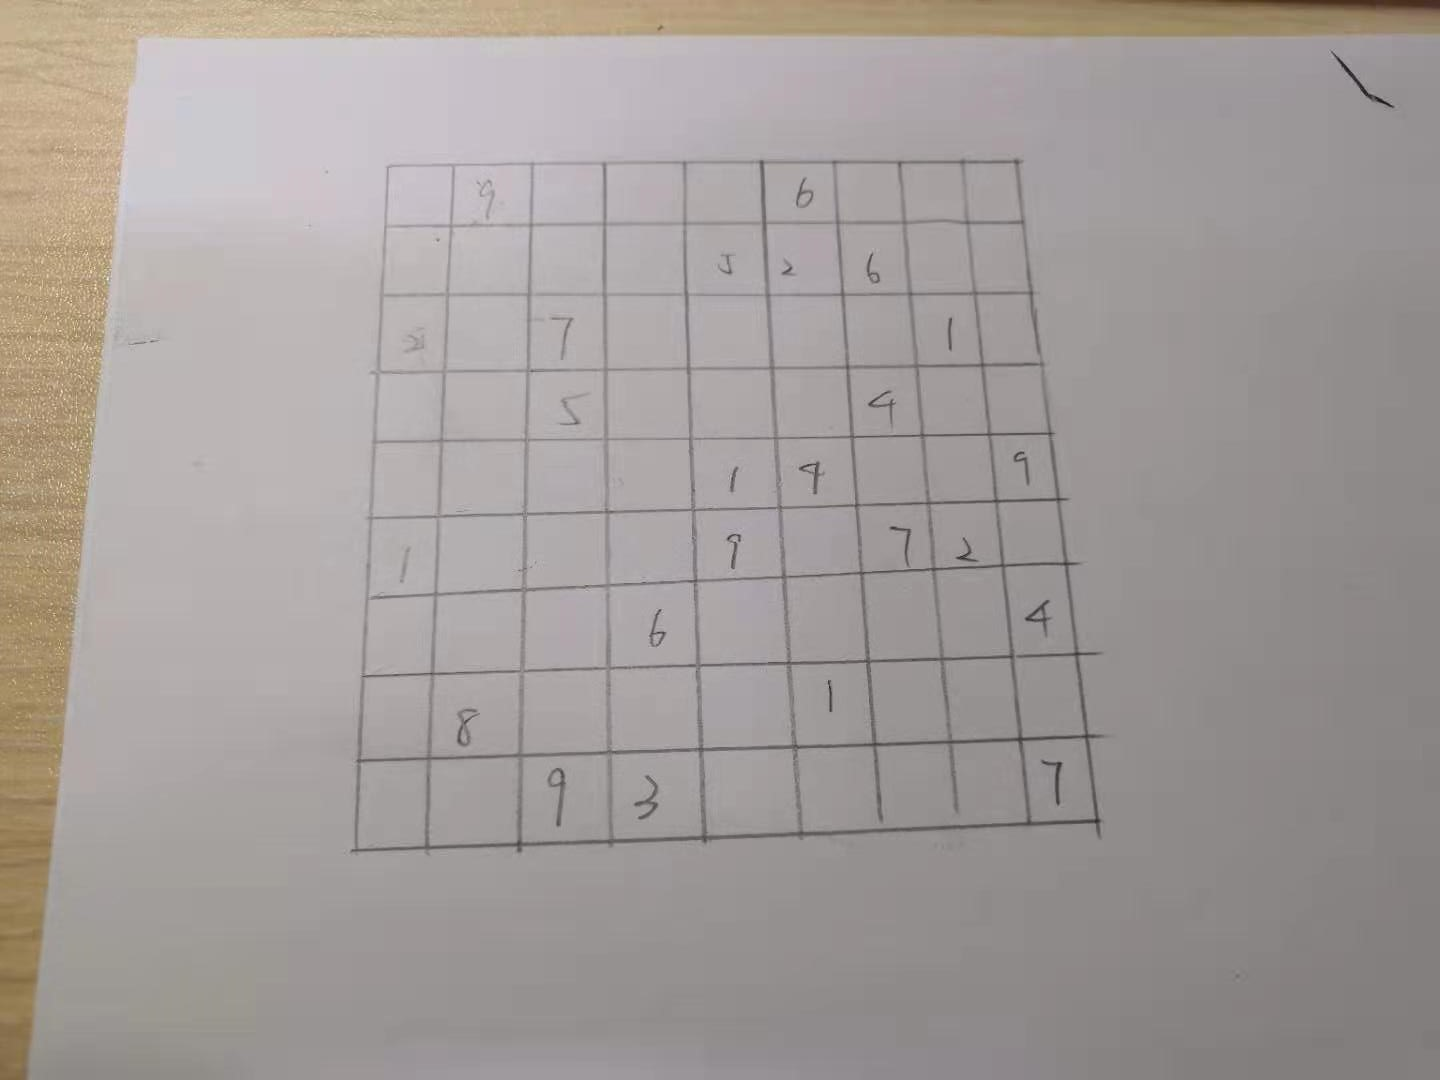 9 6
5 2 6
2 7 1
5 4
1 4 9
1 9 7 2
6 4
8 1
9 3 7